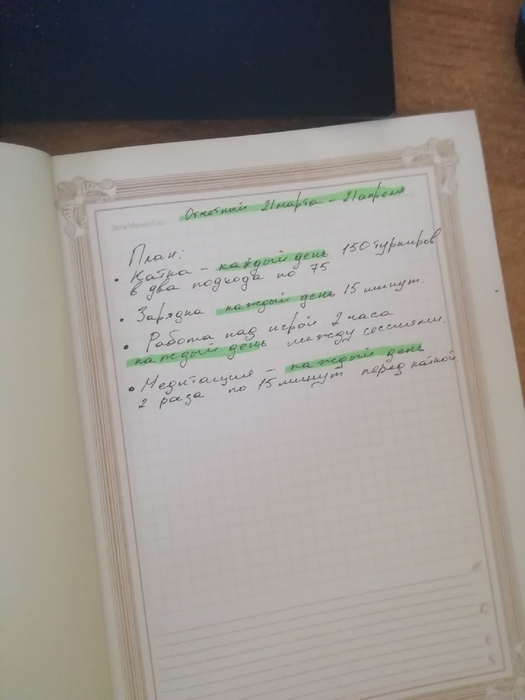 Отчетный 21 марта - 21 апреля
План:
• Катка - каждый день 150 турниров
в два подхода по 75
• Зарядка каждый день 15 минут.
• Работа над игрой 2 часа
каждый день между сессиями.
• Медитация - каждый день
2 раза по 15 минут перед каткой